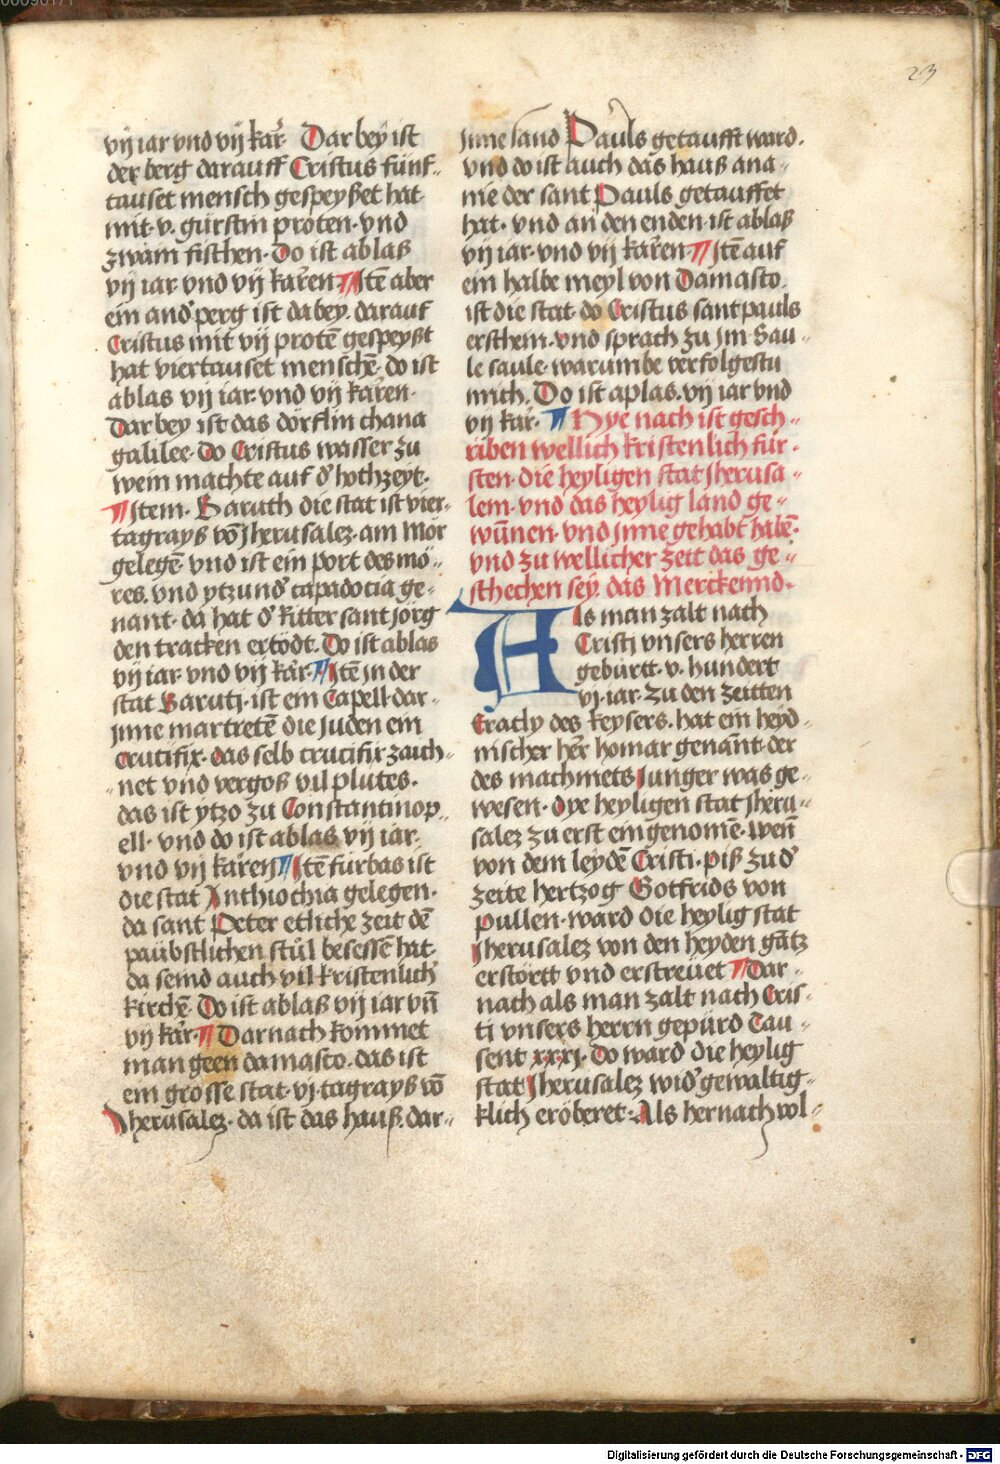 00090171
23
vij iar vnd vij kar̃ Dar bey ist
der berg darauff Cristus fünf⸗
tauset mensch gespeyßet hat
mit · v · gürstin proten · vnd
zwain fischen · Do ist ablaß
vij iar · vnd vij karen · ¶ Itē aber
ein and' perg ist da bey · darauf
Cristus mit vij protē gespeyßt
hat viertauset menschē · do ist
ablas vij iar · vnd vij karen ·
Dar bey ist das dörflin chana
galilee · do Cristus wasser zu
wein machte auf d' hochzeyt ·
¶ Item · Baruth die stat ist vier⸗
tagrayß vō Jherusalez · am Mör
gelegē · vnd ist ein port des mö⸗
res · vnd ytzund' capadocia ge⸗
nant · da hat d' Ritter sant jörg
den tracken ertödt · Do ist ablas
vij iar · vnd vij kar̃ · ¶ Itē jn der
stat Barutj · ist ein Capell · dar⸗
jnne martretē die juden ein
Crucifix · das selb crucifix zaich⸗
net vnd vergoß vil plutes ·
das ist ytzo zu Constantinop⸗
ell · vnd do ist ablas vij iar ·
vnd vij karen ¶ Itē fürbas ist
die stat Anthiochia gelegen ·
da sant Peter etliche zeit dē
paübstlichen stůl besessē hat ·
da seind auch vil kristenlich'
kirchē · Do ist ablaß vij iar vn̄
vij kar̃ · ¶ Darnach kommet
man geen damasco · das ist
ein grosse stat · vj · tagrayß vō
Jherusalez · da ist das hauß · dar⸗
jnne sand Pauls getaufft ward ·
vnd do ist auch das hauß ana⸗
nie der sant Pauls getauffet
hat · vnd an den enden ist ablaß
vij iar · vnd vij karen · ¶ Itē auf
ein halbe meyl von Damasco ·
ist die stat · do Cristus sant pauls
erschein · vnd sprach zu jm · Sau⸗
le saule · warumbe verfolgestu
mich · Do ist aplas · vij iar vnd
vij kar̃ · ¶ Hye nach ist gesch⸗
riben wellich kristenlich für⸗
sten · die heyligen stat Jherusa⸗
lem · vnd das heylig land ge⸗
wūnen · vnd jnne gehabt habē ·
vnd zu wellicher zeit das ge⸗
schechen sey · das Merckennd ·
Als man zalt nach
Cristj vnsers herren
gebürtt · v · hundert
vj · iar · zu den zeitten
Eracly des keysers · hat ein heyd⸗
nischer her̃ homar genañt · der
des machmets junger was ge⸗
wesen · dye heyligen stat Jheru⸗
salez zu erst eingenomē · wen̄
von dem leydē Cristi · piß zu d'
zeite hertzog Gotfrids von
pullen · ward die heylig stat
Jherusalez von den heyden gātz
erstörtt vnd erstreüet ¶ Dar⸗
nach als man zalt nach Cris⸗
ti vnsers herrn gepürd Tau⸗
sent xxxj · Do ward die heylig
stat Jherusalez wid' gewaltig⸗
klich eroberet · Als hernach vol⸗
Digitalisierung gefördert durch die Deutsche Forschungsgemeinschaft - DFG